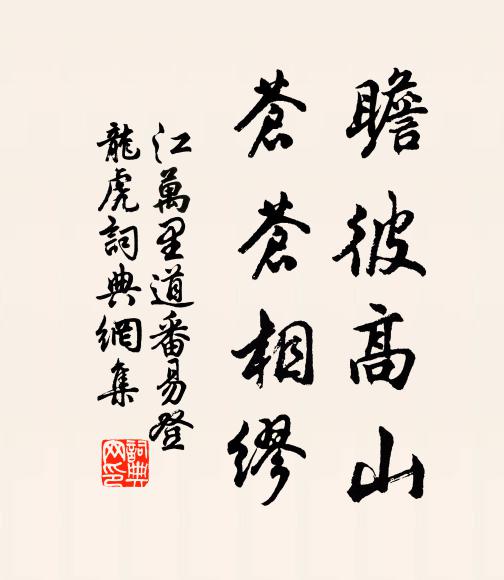 瞻彼高山
蒼蒼相繆
江萬里道番易登
龍虎詞典網集
詞典
网印